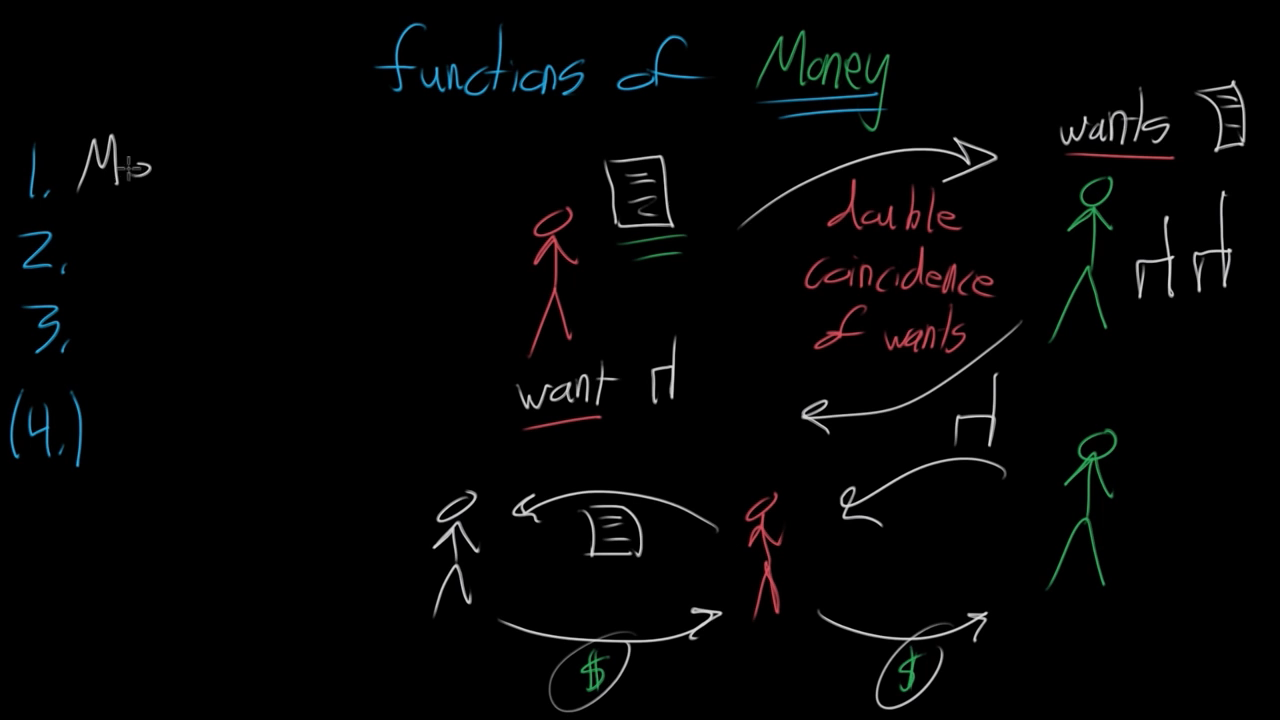 functions of Money
wants
1. M
2.
3.
(4.)
double
coincidence
of wants
want
$ $